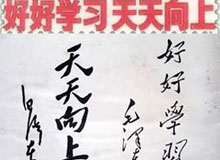 好好学习 天天向上
好好學習
毛泽东
天天向上